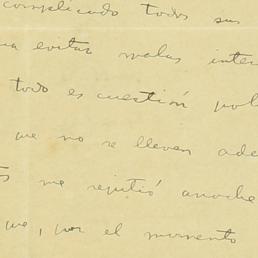 complicado todos sus
evitar malas inter
todo es cuestión pol
que no se lleven ade
me repitió anoche
que, por el momento